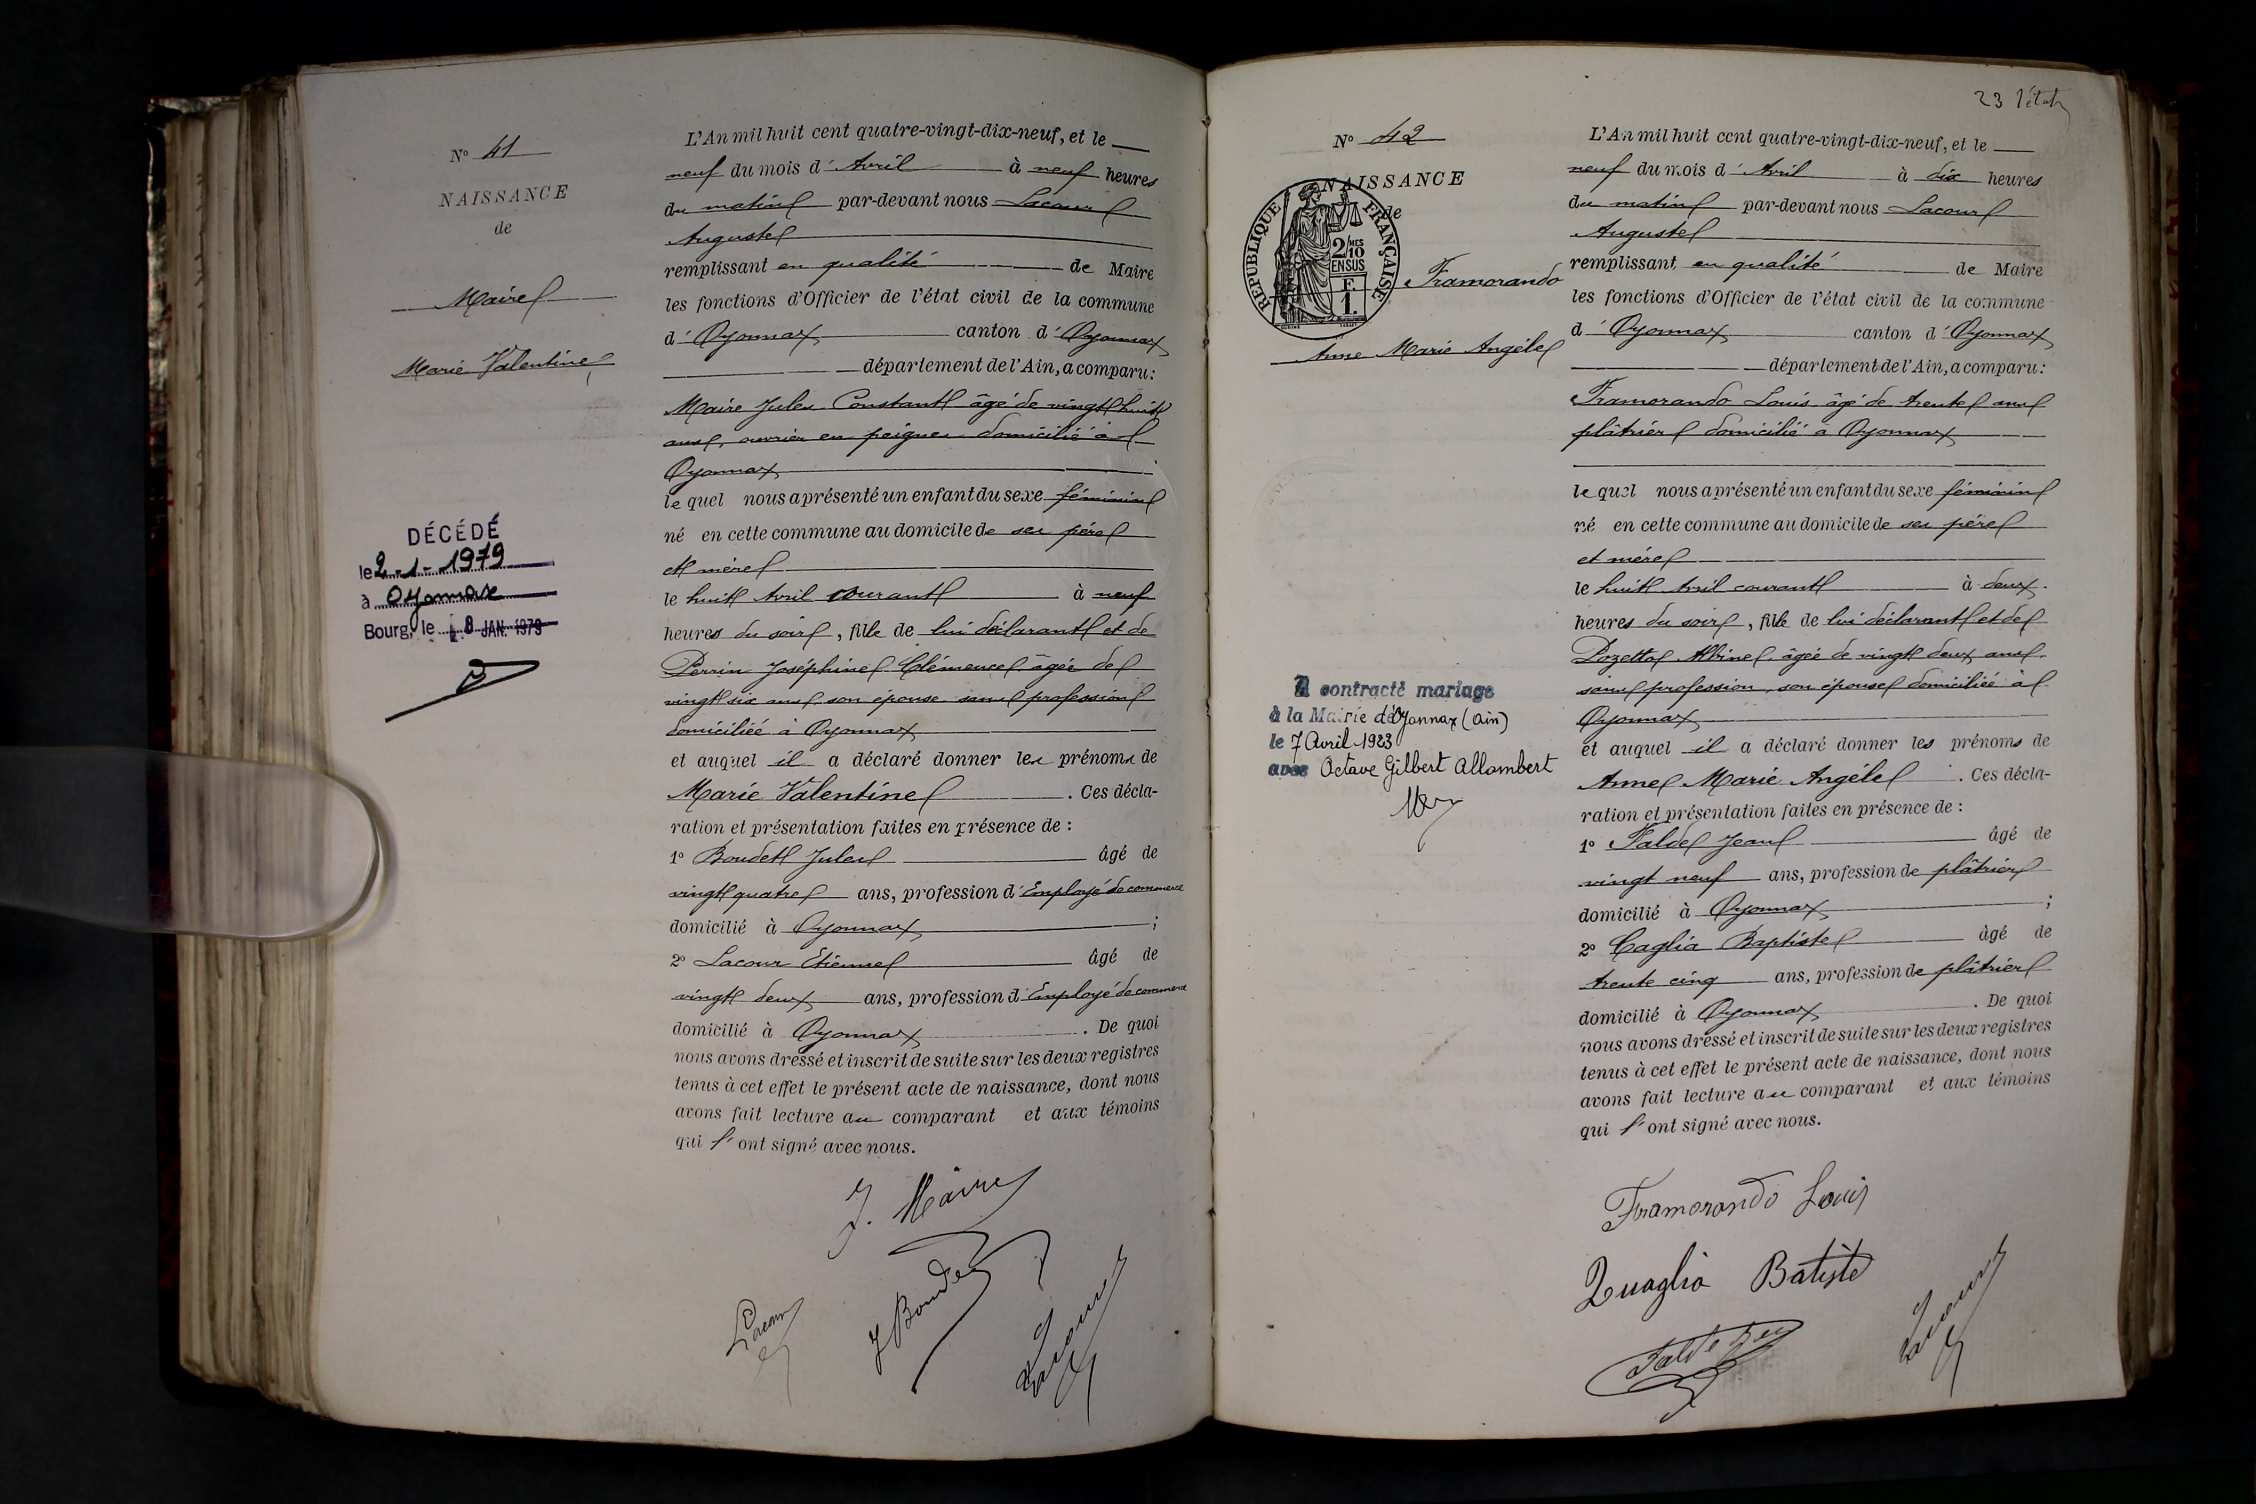 N° 41
NAISSANCE
de
Maire
Marie Valentine
DÉCÉDÉ
le 2-1-1979
à Oyonnax
Bourg, le 8 JAN. 1979
L'An mil huit cent quatre-vingt-dix-neuf, et le
neuf du mois d'Avril à neuf heures
du matin par-devant nous Lacour
Auguste
remplissant en qualité de Maire
les fonctions d'Officier de l'état civil de la commune
d'Oyonnax canton d'Oyonnax
département de l'Ain, a comparu:
Maire Jules Constant âgé de vingt huit
ans, ouvrier en peignes domicilié à
Oyonnax
lequel nous a présenté un enfant du sexe féminin
né en cette commune au domicile de ses père
et mère
le huit Avril courant à neuf
heures du soir, fille de lui déclarant et de
Perrin Joséphine Clémence âgée de
vingt six ans, son épouse sans profession
domiciliée à Oyonnax
et auquel il a déclaré donner les prénoms de
Marie Valentine. Ces décla-
ration et présentation faites en présence de :
1° Boudet Jules âgé de
vingt quatre ans, profession d'Employé de commerce
domicilié à Oyonnax ;
2° Lacour Etienne âgé de
vingt deux ans, profession d'Employé de commerce
domicilié à Oyonnax. De quoi
nous avons dressé et inscrit de suite sur les deux registres
tenus à cet effet le présent acte de naissance, dont nous
avons fait lecture au comparant et aux témoins
qui l'ont signé avec nous.
J. Maire
Lacour
J Boudet
Lacour
23
N° 42
NAISSANCE
de
RÉPUBLIQUE FRANÇAISE
2/10MES
EN SUS
F.
1.
Framorando
Anne Marie Angèle
A contracté mariage
à la Mairie d'Oyonnax (Ain)
le 7 Avril 1923
avec Octave Gilbert Allombert
L'An mil huit cent quatre-vingt-dix-neuf, et le
neuf du mois d'Avril à dix heures
du matin par-devant nous Lacour
Auguste
remplissant en qualité de Maire
les fonctions d'Officier de l'état civil de la commune
d'Oyonnax canton d'Oyonnax
département de l'Ain, a comparu:
Framorando Louis âgé de trente ans
plâtrier domicilié à Oyonnax
lequel nous a présenté un enfant du sexe féminin
né en cette commune au domicile de ses père
et mère
le huit Avril courant à deux
heures du soir, fille de lui déclarant et de
Pozetta Albine âgée de vingt deux ans
sans profession, son épouse domiciliée à
Oyonnax
et auquel il a déclaré donner les prénoms de
Anne Marie Angèle. Ces décla-
ration et présentation faites en présence de :
1° Falde Jean âgé de
vingt neuf ans, profession de plâtrier
domicilié à Oyonnax ;
2° Caglia Baptiste âgé de
trente cinq ans, profession de plâtrier
domicilié à Oyonnax. De quoi
nous avons dressé et inscrit de suite sur les deux registres
tenus à cet effet le présent acte de naissance, dont nous
avons fait lecture au comparant et aux témoins
qui l'ont signé avec nous.
Framorando Louis
Quaglia Batiste
Lacour